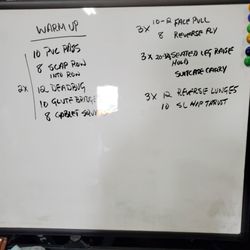 WARM UP
10 PVC PASS
8 SCAP ROW
INTO ROW
2x 12 DEADBUG
10 GLUTE BRIDGE
8 GOBLET SQUAT
3x 10-12 FACE PULL
8 REVERSE FLY
3x SEATED LEG RAISE
HOLD
SUITCASE CARRY
3x 12 REVERSE LUNGES
10 SL HIP THRUST